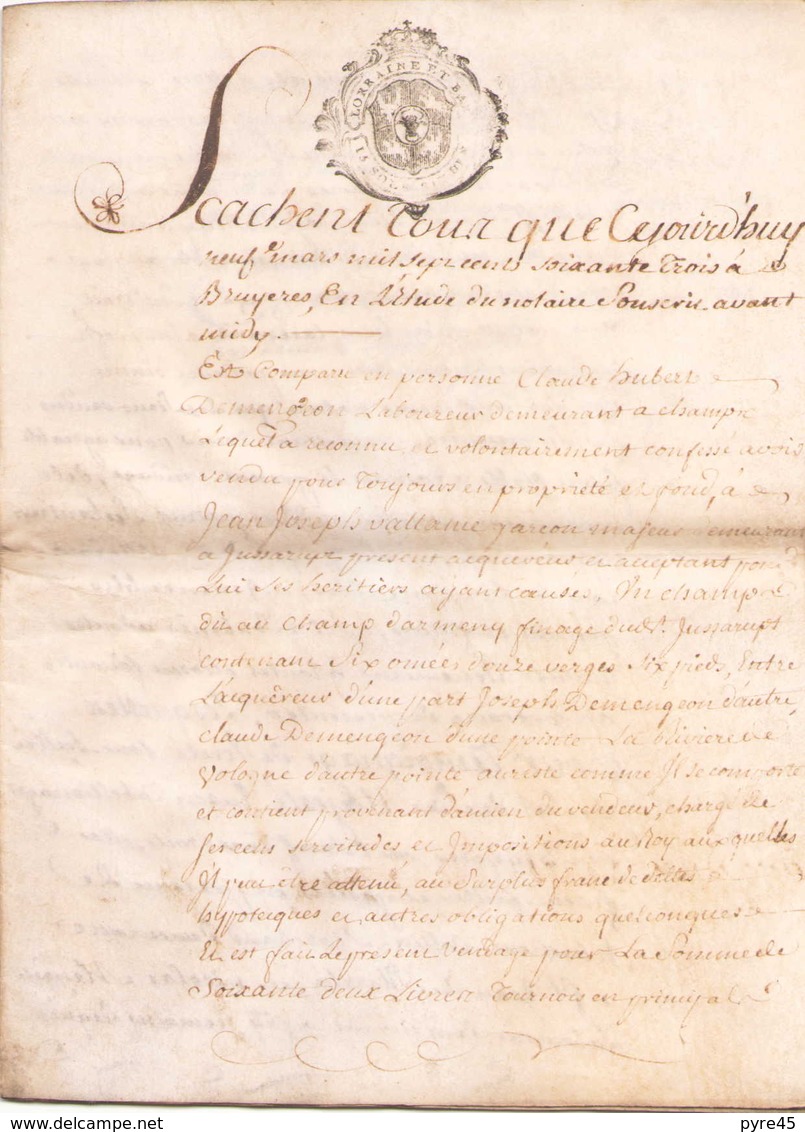 LORRAINE ET BA
Scachent Tous que Cejourd'huy
neuf mars mil sept cent soixante Trois à
Bruyeres, En L'Etude du notaire Souscrit avant
midy.
Est Comparu en personne Claude hubert
Demengeon Laboureur demeurant a champ
Lequel a reconnu et volontairement confessé avoir
vendu pour Toujours en propriété et fond, à
Jean Joseph vallance garcon majeur demeurant
a Jussarupt present acquereur et acceptant pour
Lui ses heritiers ayant causes, Un champ
dit au champ d'armeny finage dudt. Jussarupt
contenant Six omées douze verges six pieds, Entre
L'acquéreur d'une part Joseph Demengeon d'autre,
claude Demengeon d'une pointe La Riviere de
Vologne d'autre pointe au reste comme Il se comporte
et contient provenant d'ancien du vendeur, chargé de
ses cens servitudes et Impositions du Roy auxquelles
Il peut être attenu, au Surplus franc de dettes
hypoteques et autres obligations quelconques
Et est fait Le present vendage pour La Somme de
Soixante deux Livres Tournois en principal
pyre45